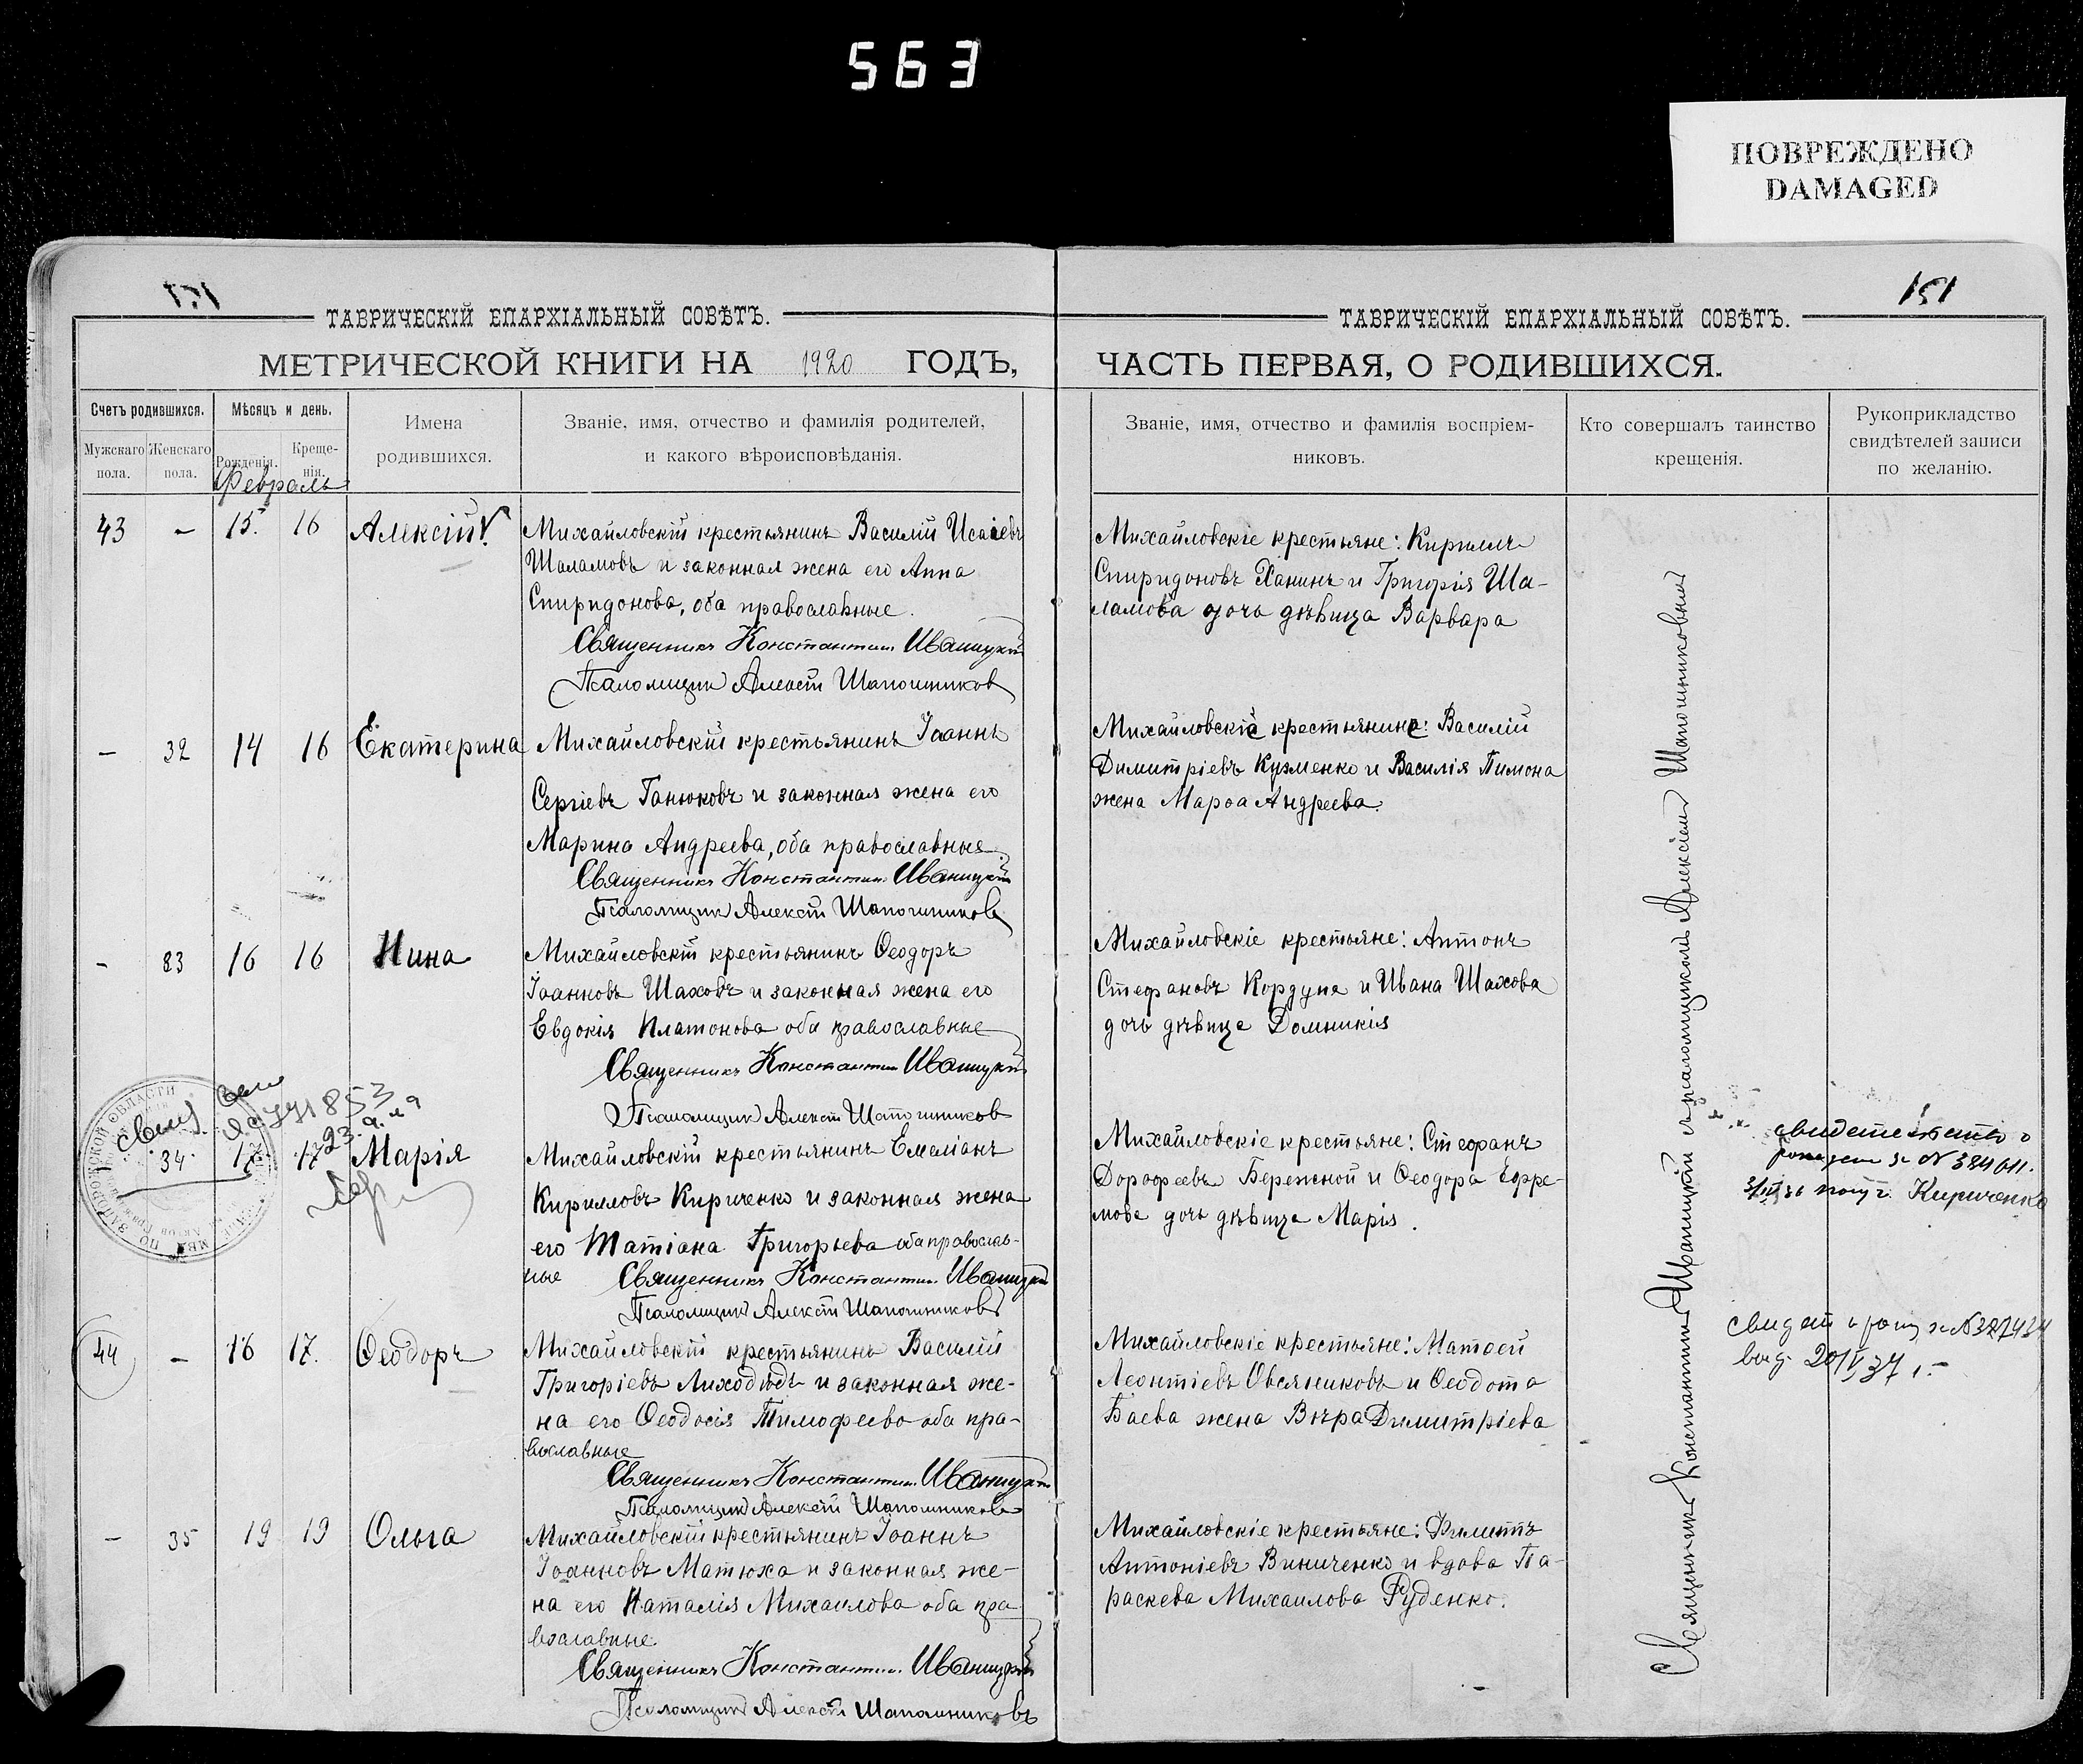 563
ПОВРЕЖДЕНО
DAMAGED
151
ТАВРИЧЕСКІЙ ЕПАРХІАЛЬНЫЙ СОВѢТЪ.
МЕТРИЧЕСКОЙ КНИГИ НА 1920 ГОДЪ,
Счетъ родившихся.
Мужскаго пола.
Женскаго пола.
Мѣсяцъ и день.
Рожденія.
Креще-
нія.
Февраль
Имена
родившихся.
Званіе, имя, отчество и фамилія родителей,
и какого вѣроисповѣданія.
43 – 15. 16 Алексій
Михайловскій крестьянинъ Василій Исаіевъ
Шаламовъ и законная жена его Анна
Спиридонова, оба православные.
Священникъ Константин Иваницкій
Псаломщик Алексѣй Шапошников
– 32 14 16 Екатерина
Михайловскій крестьянинъ Іоаннъ
Сергіевъ Ганюковъ и законная жена его
Марина Андреева, оба православные.
Священникъ Константин Иваницкій
Псаломщик Алексѣй Шапошников
- 83 16 16 Нина
Михайловскій крестьянинъ Ѳеодоръ
Іоанновъ Шаховъ и законная жена его
Евдокія Платонова оба православные
Священникъ Константин Иваницкій
Псаломщик Алексѣй Шапошников
34 17 17 Марія
Михайловскій крестьянинъ Емеліанъ
Кирилловъ Кириченко и законная жена
его Татіана Григорьева оба православ-
ные Священникъ Константин Иваницкій
Псаломщик Алексѣй Шапошников
44 – 16 17. Ѳеодоръ
Михайловскій крестьянинъ Василій
Григоріевъ Лиходѣдъ и законная же-
на его Ѳеодосія Тимофеева оба пра-
вославные
Священникъ Константин Иваницкій
Псаломщик Алексѣй Шапошников
– 35 19 19 Ольга
Михайловскій крестьянинъ Іоаннъ
Іоанновъ Матюха и законная же-
на его Наталія Михаилова оба пра-
вославные.
Священникъ Константин Иваницкій
Псаломщик Алексѣй Шапошниковъ
151
ТАВРИЧЕСКІЙ ЕПАРХІАЛЬНЫЙ СОВѢТЪ.
ЧАСТЬ ПЕРВАЯ, О РОДИВШИХСЯ.
Званіе, имя, отчество и фамилія воспріем-
никовъ.
Кто совершалъ таинство
крещенія.
Рукоприкладство
свидѣтелей записи
по желанію.
Михайловскіе крестьяне: Кириллъ
Спиридоновъ Ханинъ и Григорія Ша-
ламова дочь дѣвица Варвара
Михайловскіе крестьяне: Василій
Димитріевъ Кузменко и Василія Пимона
жена Марѳа Андреева.
Михайловскіе крестьяне: Антонъ
Стефановъ Кордуна и Ивана Шахова
дочь дѣвица Домникія
Михайловскіе крестьяне: Стефанъ
Дорофеевъ Бережной и Ѳеодора Ефре-
мова дочь дѣвица Марія.
Михайловскіе крестьяне: Матѳей
Леонтіевъ Овсяниковъ и Ѳеодота
Баева жена Вѣра Димитріева
Михайловскіе крестьяне: Филиппъ
Антоніевъ Виниченко и вдова Па-
раскева Михаилова Руденко.
Священник Константин Иваницкій и псаломщикъ Алексѣем Шапошниковым
свидетельство о
№ 384611.
Кириченко
№ 327434
выд. 20/V 37 г. –